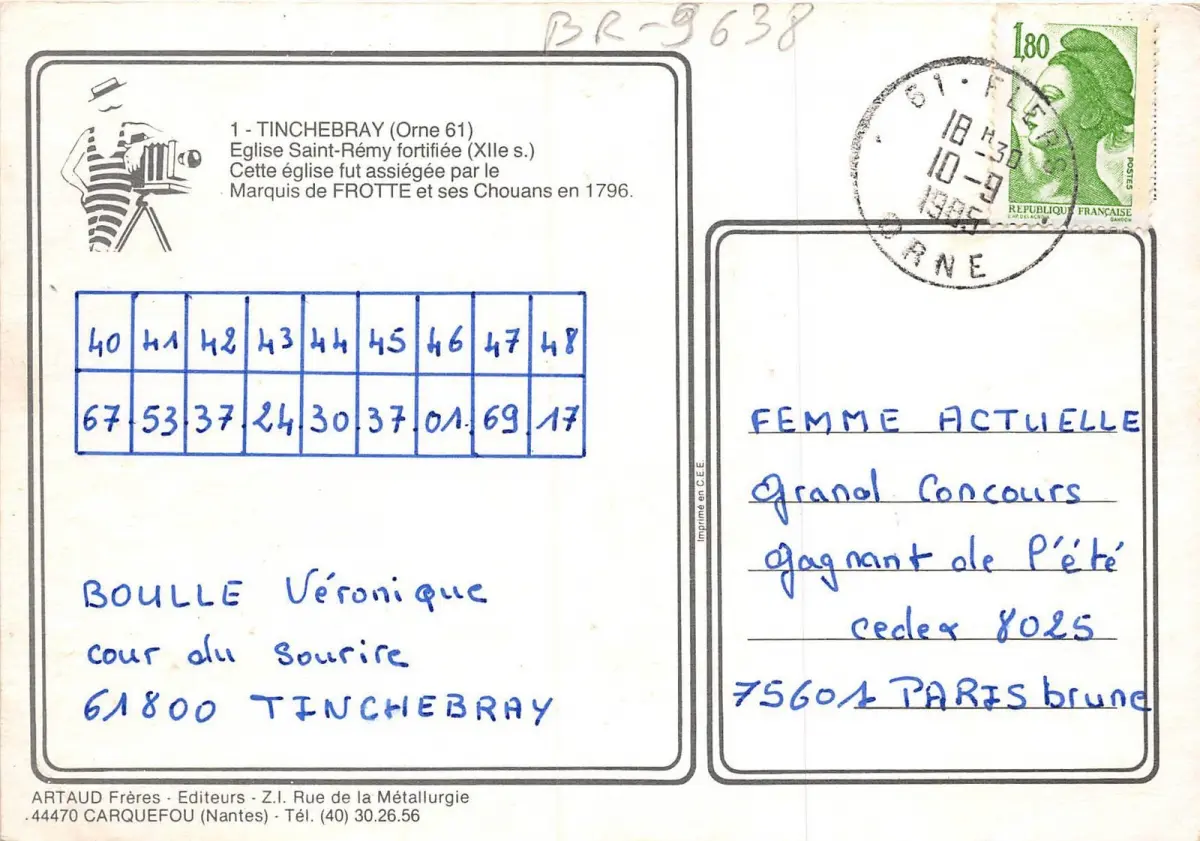 BR-9638
1,80
POSTES
REPUBLIQUE FRANÇAISE
GANDON
61 · FLERS
18 H 30
10-9
1985
ORNE
1 - TINCHEBRAY (Orne 61)
Eglise Saint-Rémy fortifiée (XIIe s.)
Cette église fut assiégée par le
Marquis de FROTTE et ses Chouans en 1796.
40 41 42 43 44 45 46 47 48
67 53 37 24 30 37 01 69 17
BOULLE Véronique
cour du Sourire
61800 TINCHEBRAY
Imprimé en C.E.E.
FEMME ACTUELLE
Grand Concours
gagnant de l'été
cedex 8025
75601 PARIS brune
ARTAUD Frères - Editeurs - Z.I. Rue de la Métallurgie
44470 CARQUEFOU (Nantes) - Tél. (40) 30.26.56